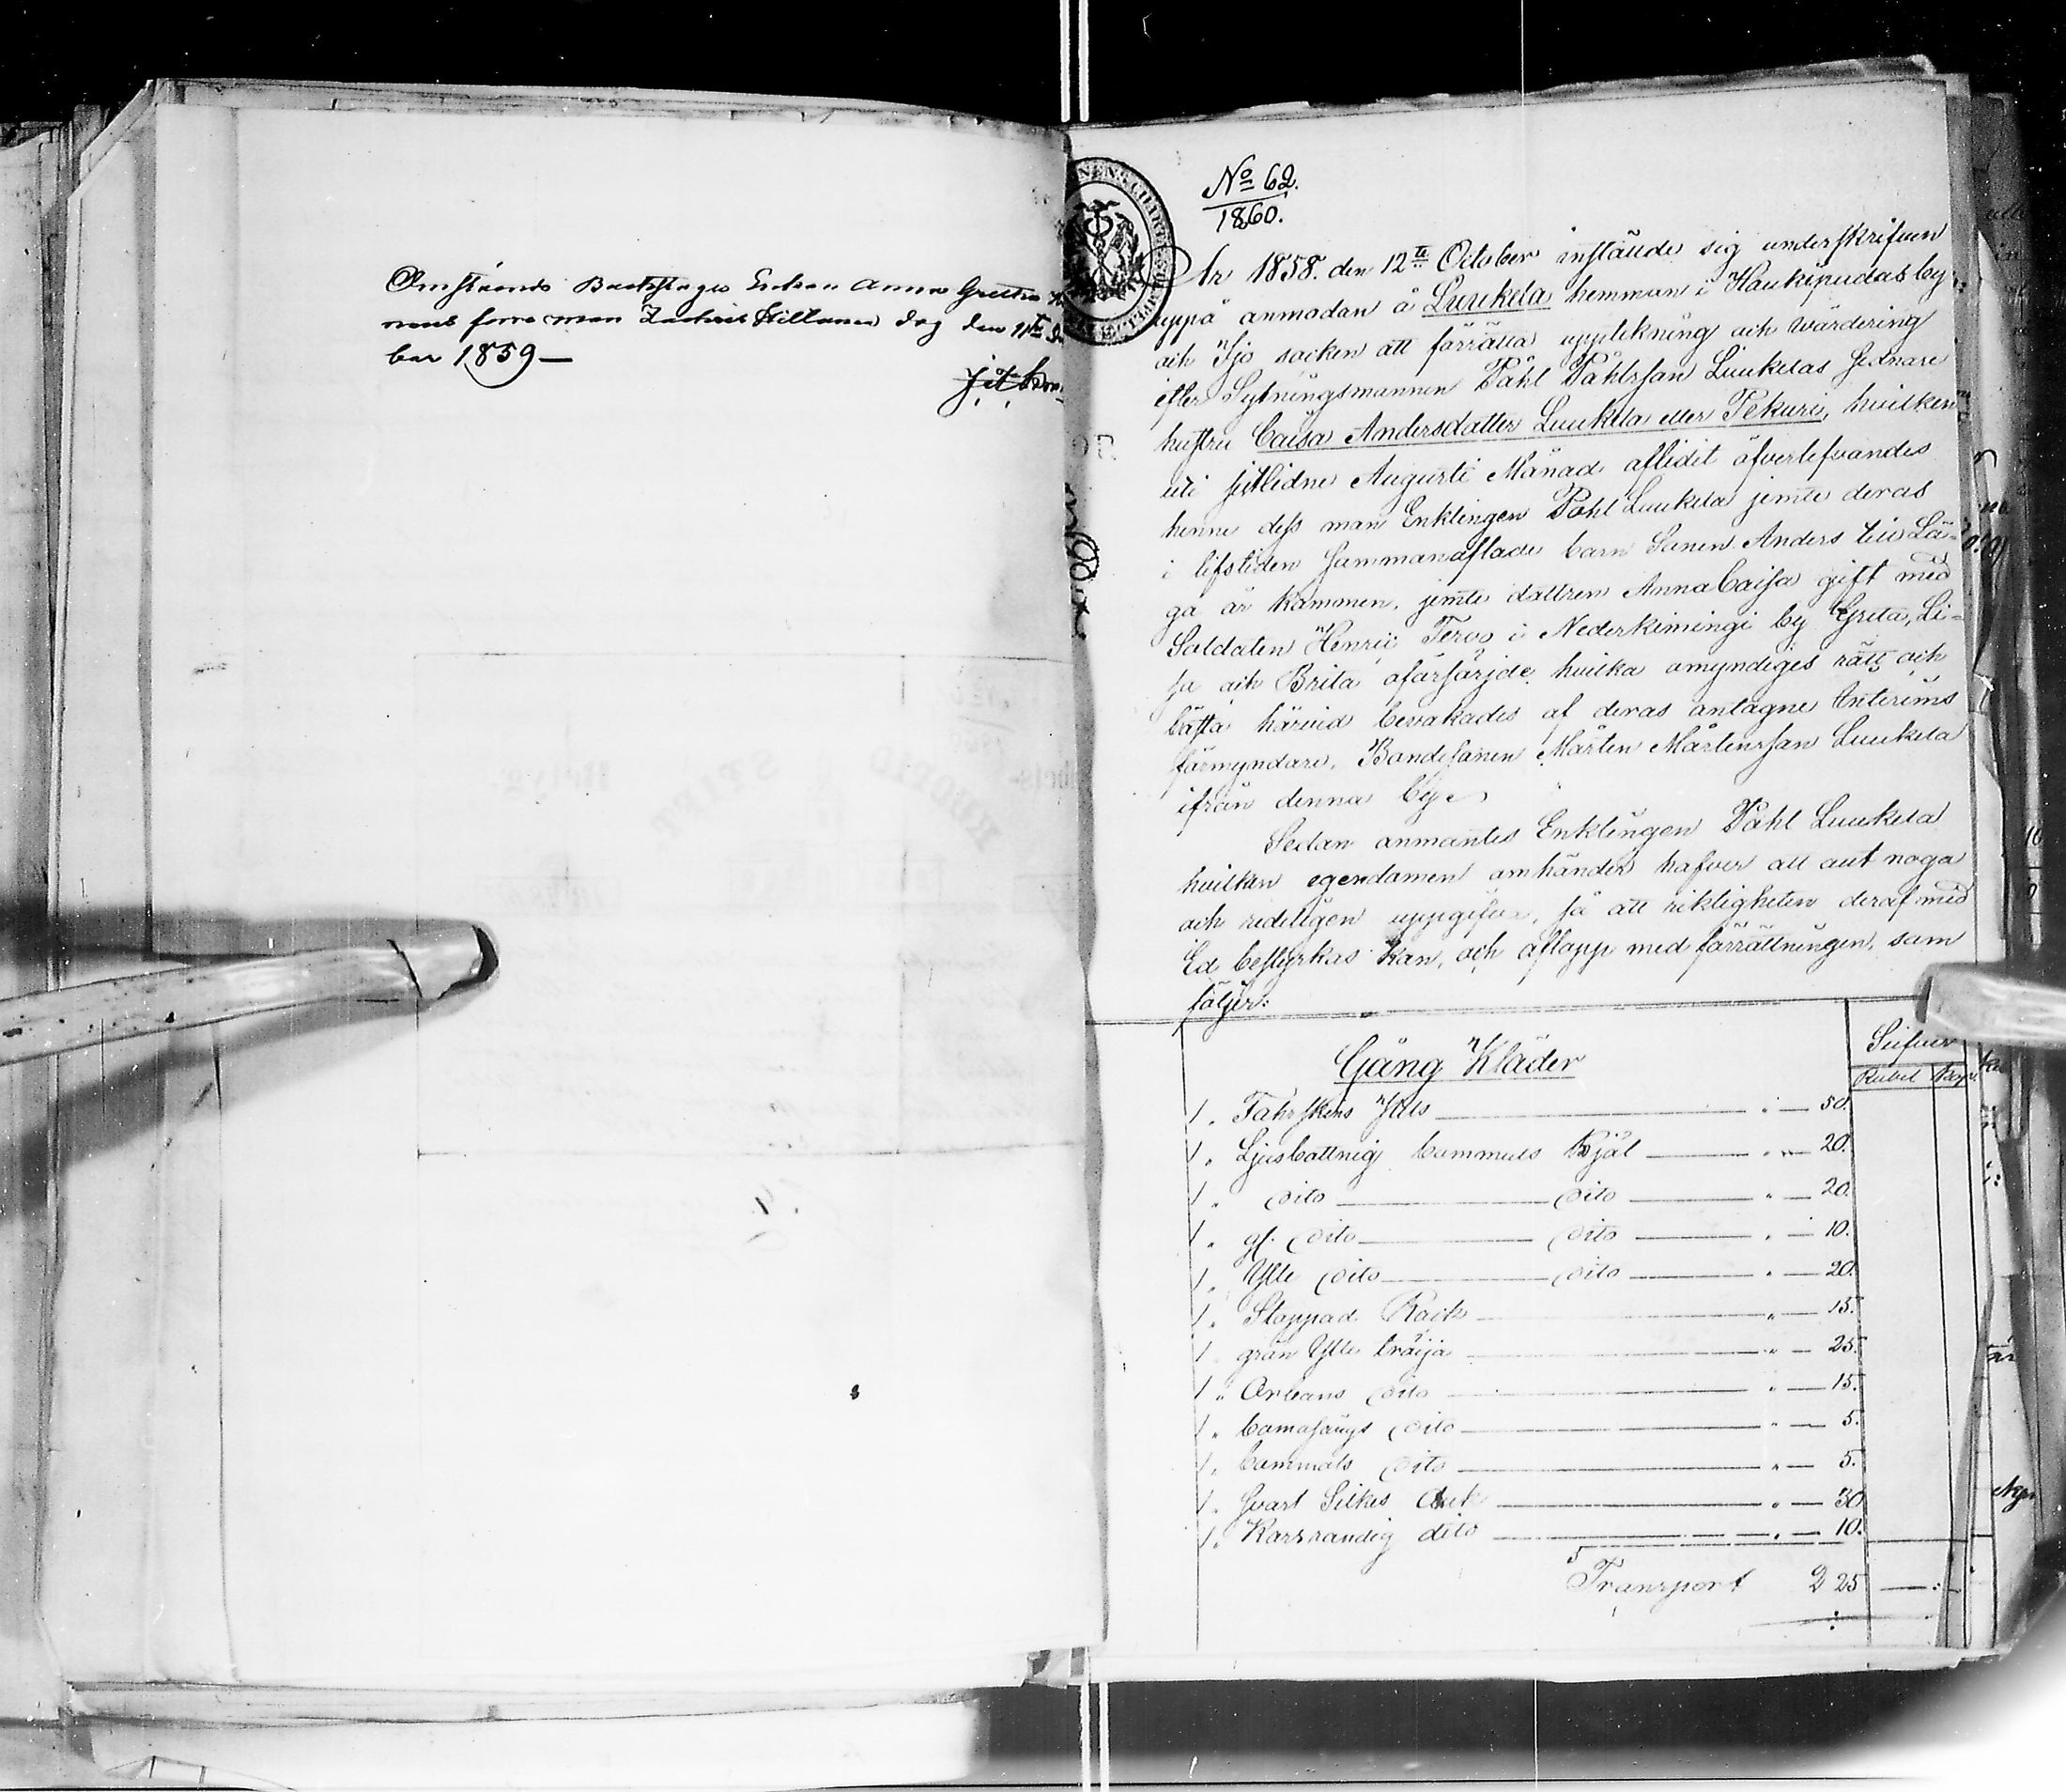 Omstående Backstugo Enkan Anna Greta
nens förre man Zachris Hillanen dog den 11te
ber 1859—
No 62.
1860.
År 1858. den 12te October inställde sig underskrifven
uppå anmodan å Luukela hemman i Haukipudas by
och Ijo socken att förrätta uppteckning och wärdering
efter Sytningsmannen Påhl Påhlsson Luukelas sednare
hustru Caisa Andersdotter Luukela eller Tekuri, hvilken
uti sistlidne Augusti Månad aflidit öfverlefvandes
henne dess man Enklingen Påhl Luukela jemte deras
i lifstiden sammanaflade barn Sonen Anders till La-
ga år kommen, jemte dottren Anna Caisa gift med
Soldaten Henric Tervo i Nederkimingi by Greta, Li-
sa och Brita oförsörjde hvilka omyndiges rätt och
bästa härvid bevakades af deras antagne Interims
förmyndare, Bondesonen Mårten Mårtensson Luukela
ifrån denna by
Sedan anmantes Enklingen Påhl Luukela
hvilken egendomen omhänder hafver att allt noga
och redeligen uppgifva, så att riktigheten deraf med
Ed bestyrkas kan, och aflopp med förrättningen, som
följer:
Gång Kläder
Silfver
Rubel Kop
1 " Fahrskins " — 50.
1 " Ljusbottnig bommuls Kjol " — 20.
1 " dito dito " — 20.
1 " gl. dito dito " — 10.
1 " Ylle dito dito " — 20.
1 " Stoppad Rock " — 15.
1 " grön Ylle tröija " — 25.
1 " Orleans dito " — 15.
1 " dito " — 5.
1 " bommuls dito " — 5.
1 " svart Silkes duk " — 30
1 " Korsrandig dito " — 10.
Transport 2 25